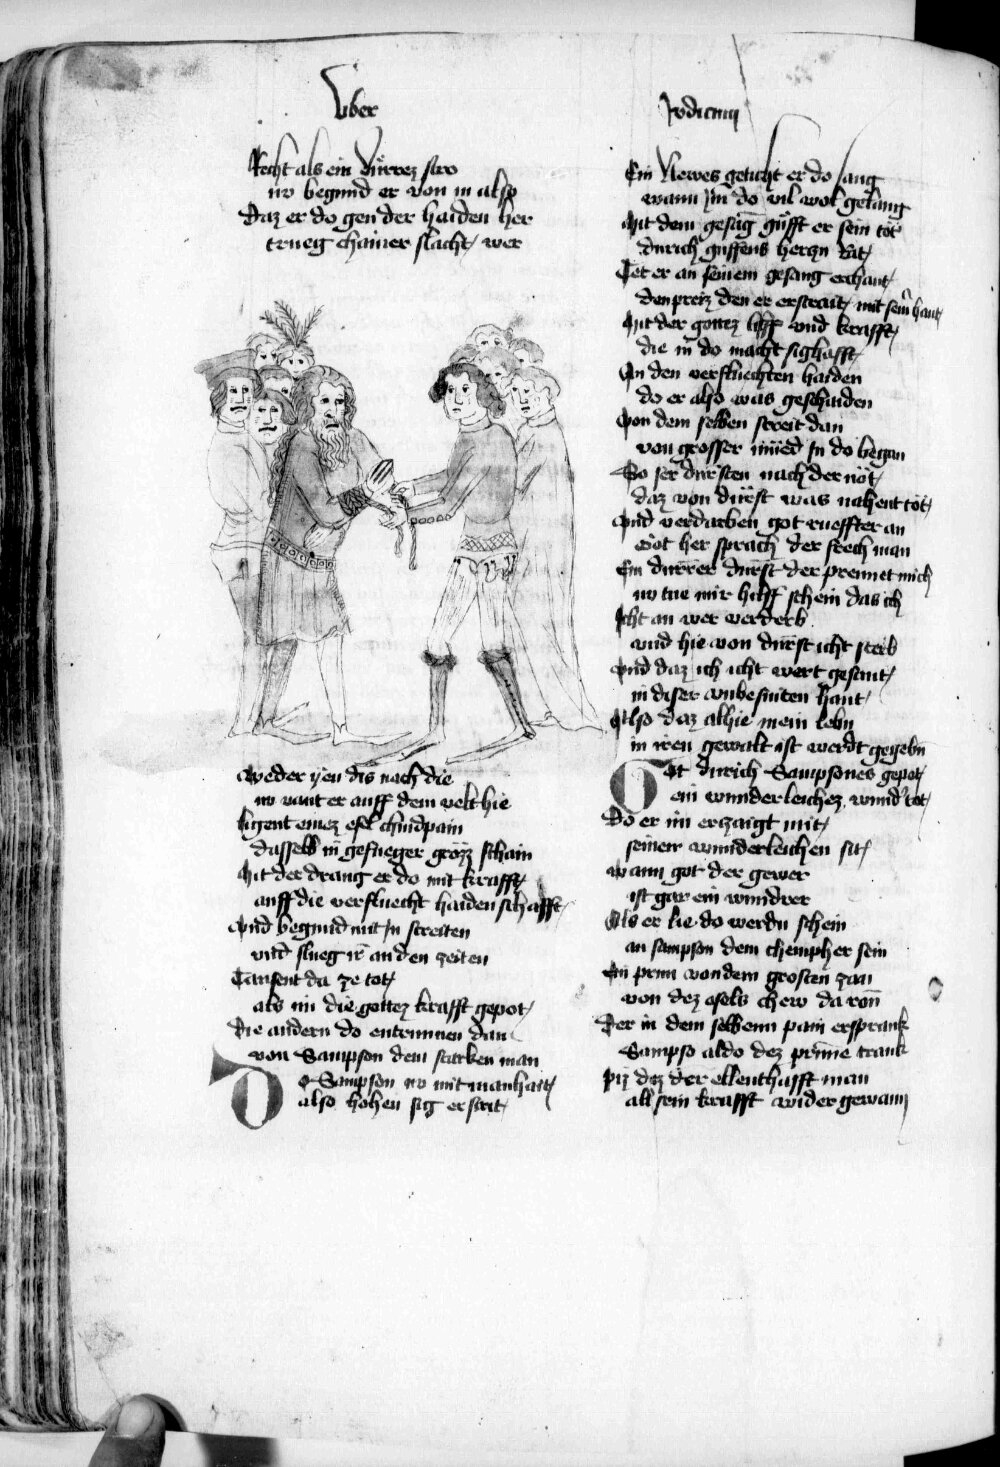 Vber
Judicum
Recht als ein dürrez stro
nv begund er von in also
Daz er do gen der haiden her
trueg chainer slacht wer
weder yen dis noch die
nv vant er auff dem velt hie
ligent einez esel chindpain
dasselb in gefueger grözz schain
Mit der drang er do mit krafft
auff die verfluecht haidenschafft
vnd begund mit In streiten
vnd slueg ir an den zeiten
Tausent da ze tot
als im die gottez krafft gepot
Die andern do entrunnen dan
von Sampson dem starken man
Do Sampson nv mit manhait
also hohen sig erstrit
Ein Newes geticht er do sang
wann ym do vil wol gelang
Mit dem gesang güfft er sein tot
durich guffens herczn rat
Tet er an seinem gesang erchant
den preiz den er erstrait mit seinr hant
Mit der gottez hilff vnd krafft
die in do macht sighafft
An den verfluechten haiden
do er also was geschaiden
Von dem selben streit dan
von grosser müed In do began
So ser dürsten nach der nöt
daz von dürst was nahent töt
vnd verdarben got rueffter an
Got her sprach der frech man
Ein dürrer durst der prennet mich
nv tue mir hilff schein das ich
Icht an wer verderb
vnd hie von dürst icht sterb
vnd daz ich icht wert gesant
in diser vnbesniten hant
Also daz alhie mein lebn
in iren gewalt ist werdt gegebn
Got durich Sampsones gepot
ein wunderleichez wund tet
Do er im erzaigt mit
seinen wunderleichen sit
wann got der gewer
ist gar ein wundrer
Als er lie do werdn schein
an sampson dem chempher sein
Ein prun von dem grosten zan
von dez esels chew da ran
Der in dem selbenn pain ersprank
Sampso aldo dez prunne trank
piz daz der ellenthafft man
all sein krafft wider gewann